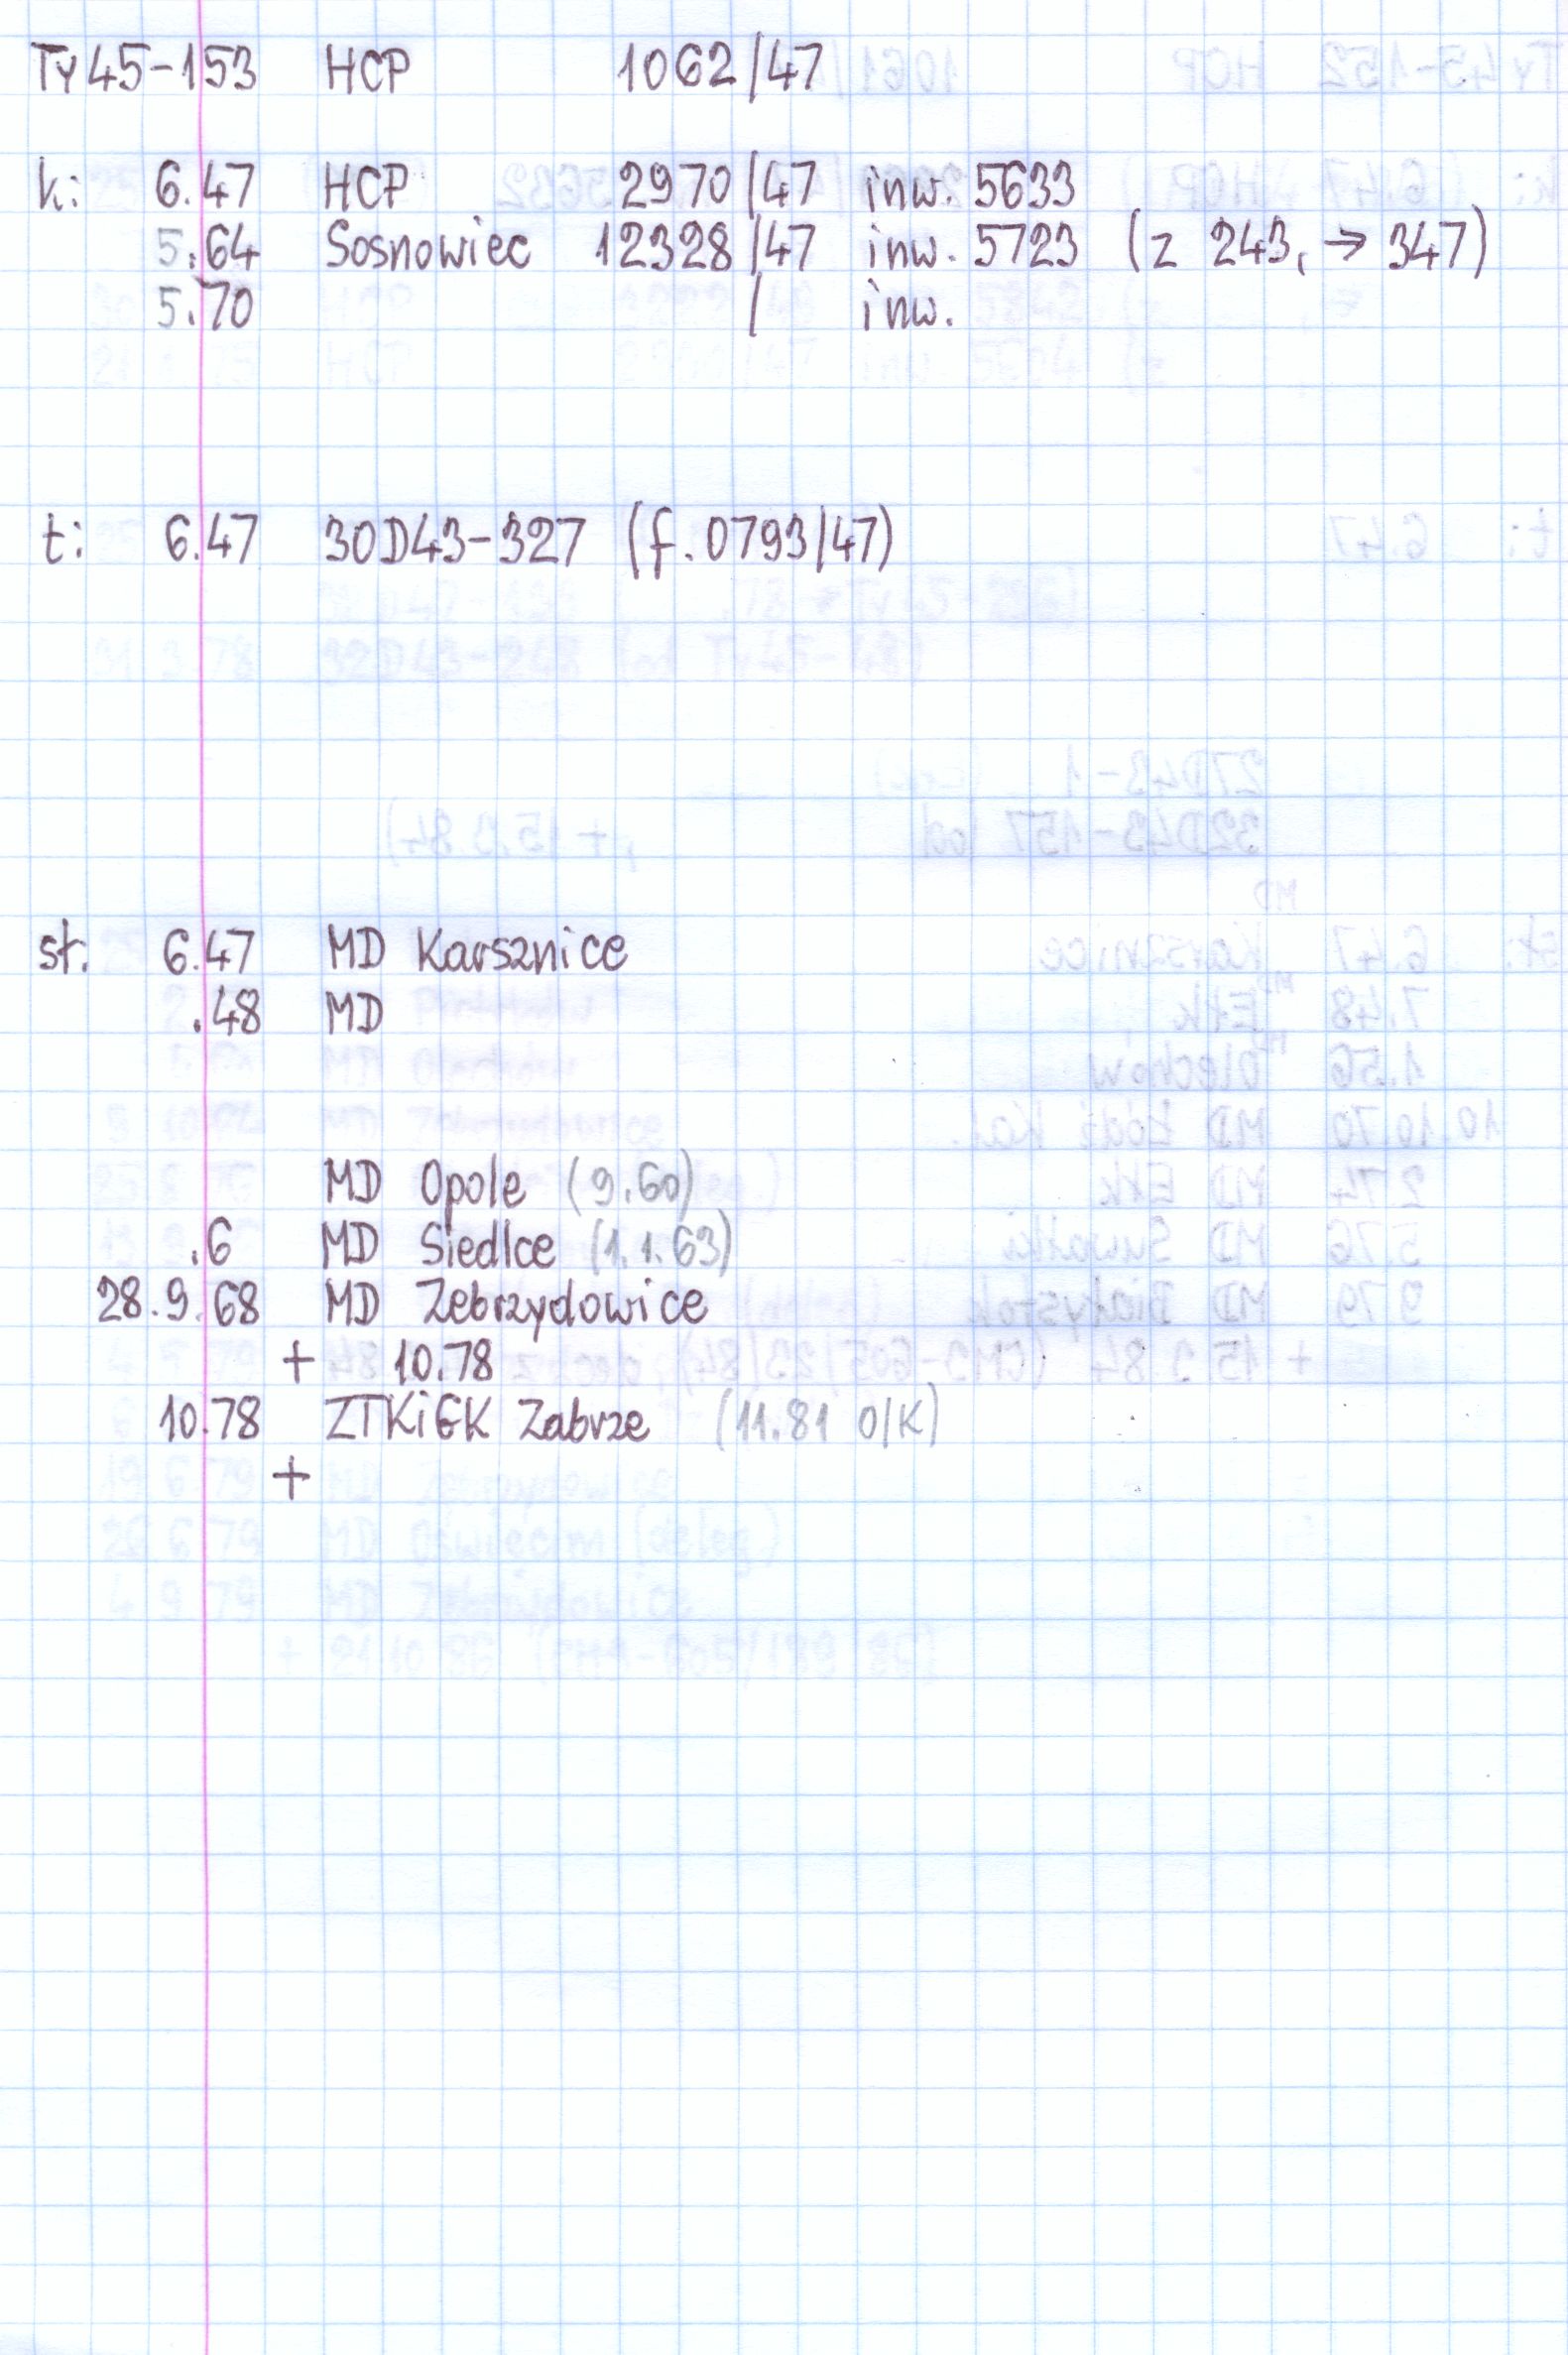 Ty45-153 HCP 1062/47
k: 6.47 HCP 2970/47 inw. 5633
5.64 Sosnowiec 12328/47 inw. 5723 (z 243, → 347)
5.70 / inw.
t: 6.47 30D43-327 (f. 0793/47)
st. 6.47 MD Karsznice
.48 MD
MD Opole (9.60)
.6 MD Siedlce (1.1.63)
28.9.68 MD Zebrzydowice
+ 10.78
10.78 ZTKiGK Zabrze (11.81 O/K)
+